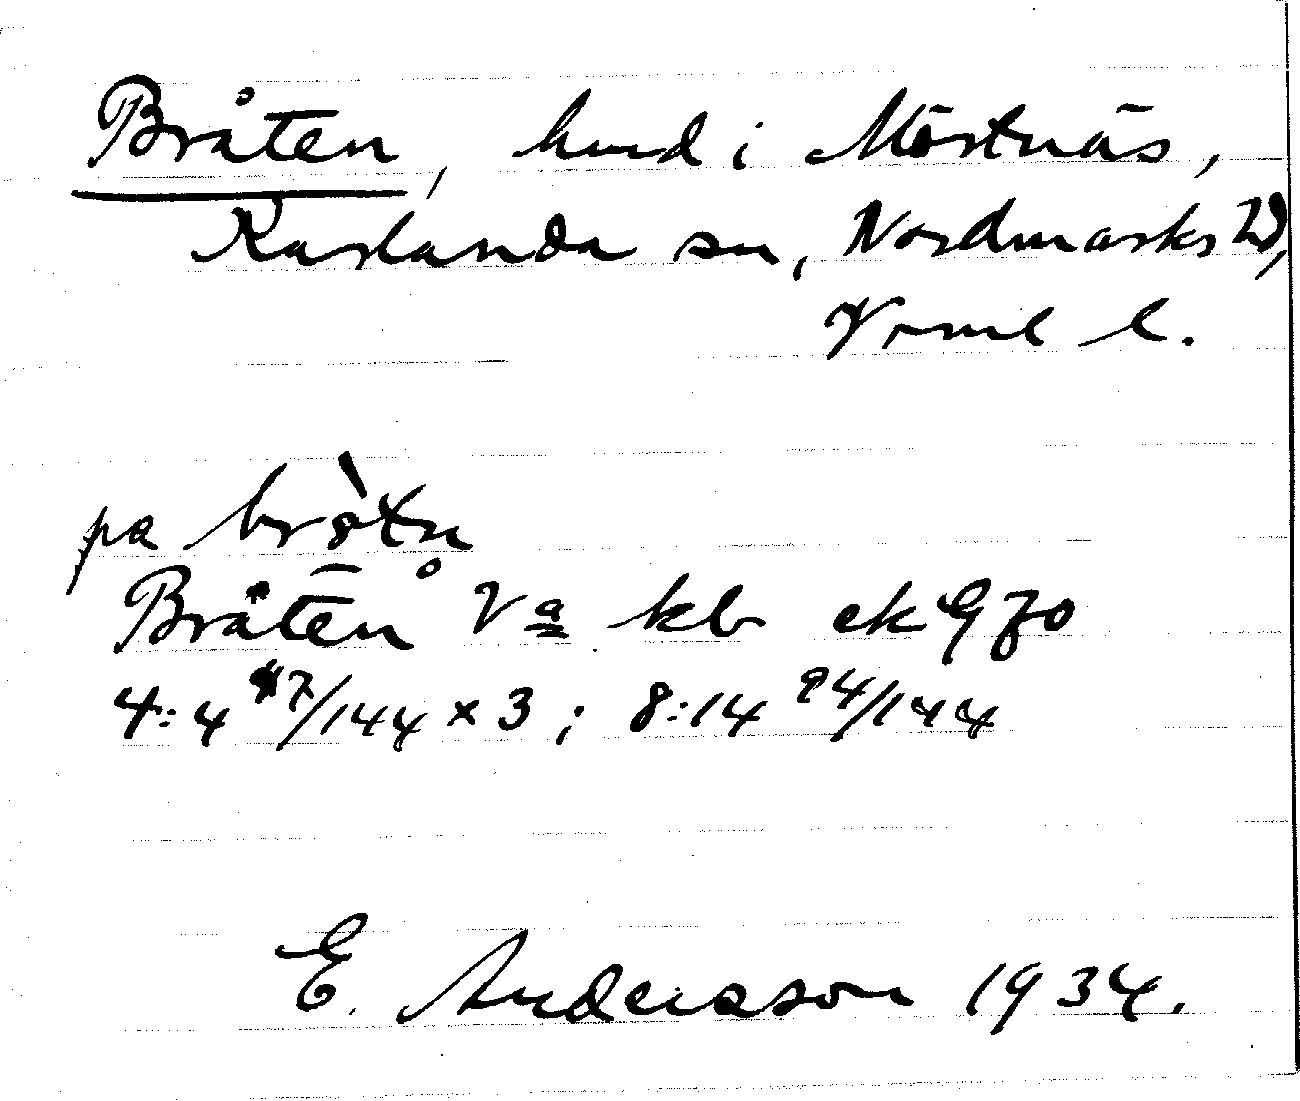 Bråten, hmd i Mörtnäs,
Karlanda sn, Nordmarks hd,
Vrml l.
pa bròtn
Bråten Va kb ek 970
4:4 47/144 x 3; 8:14 94/144
E. Andersson 1934.